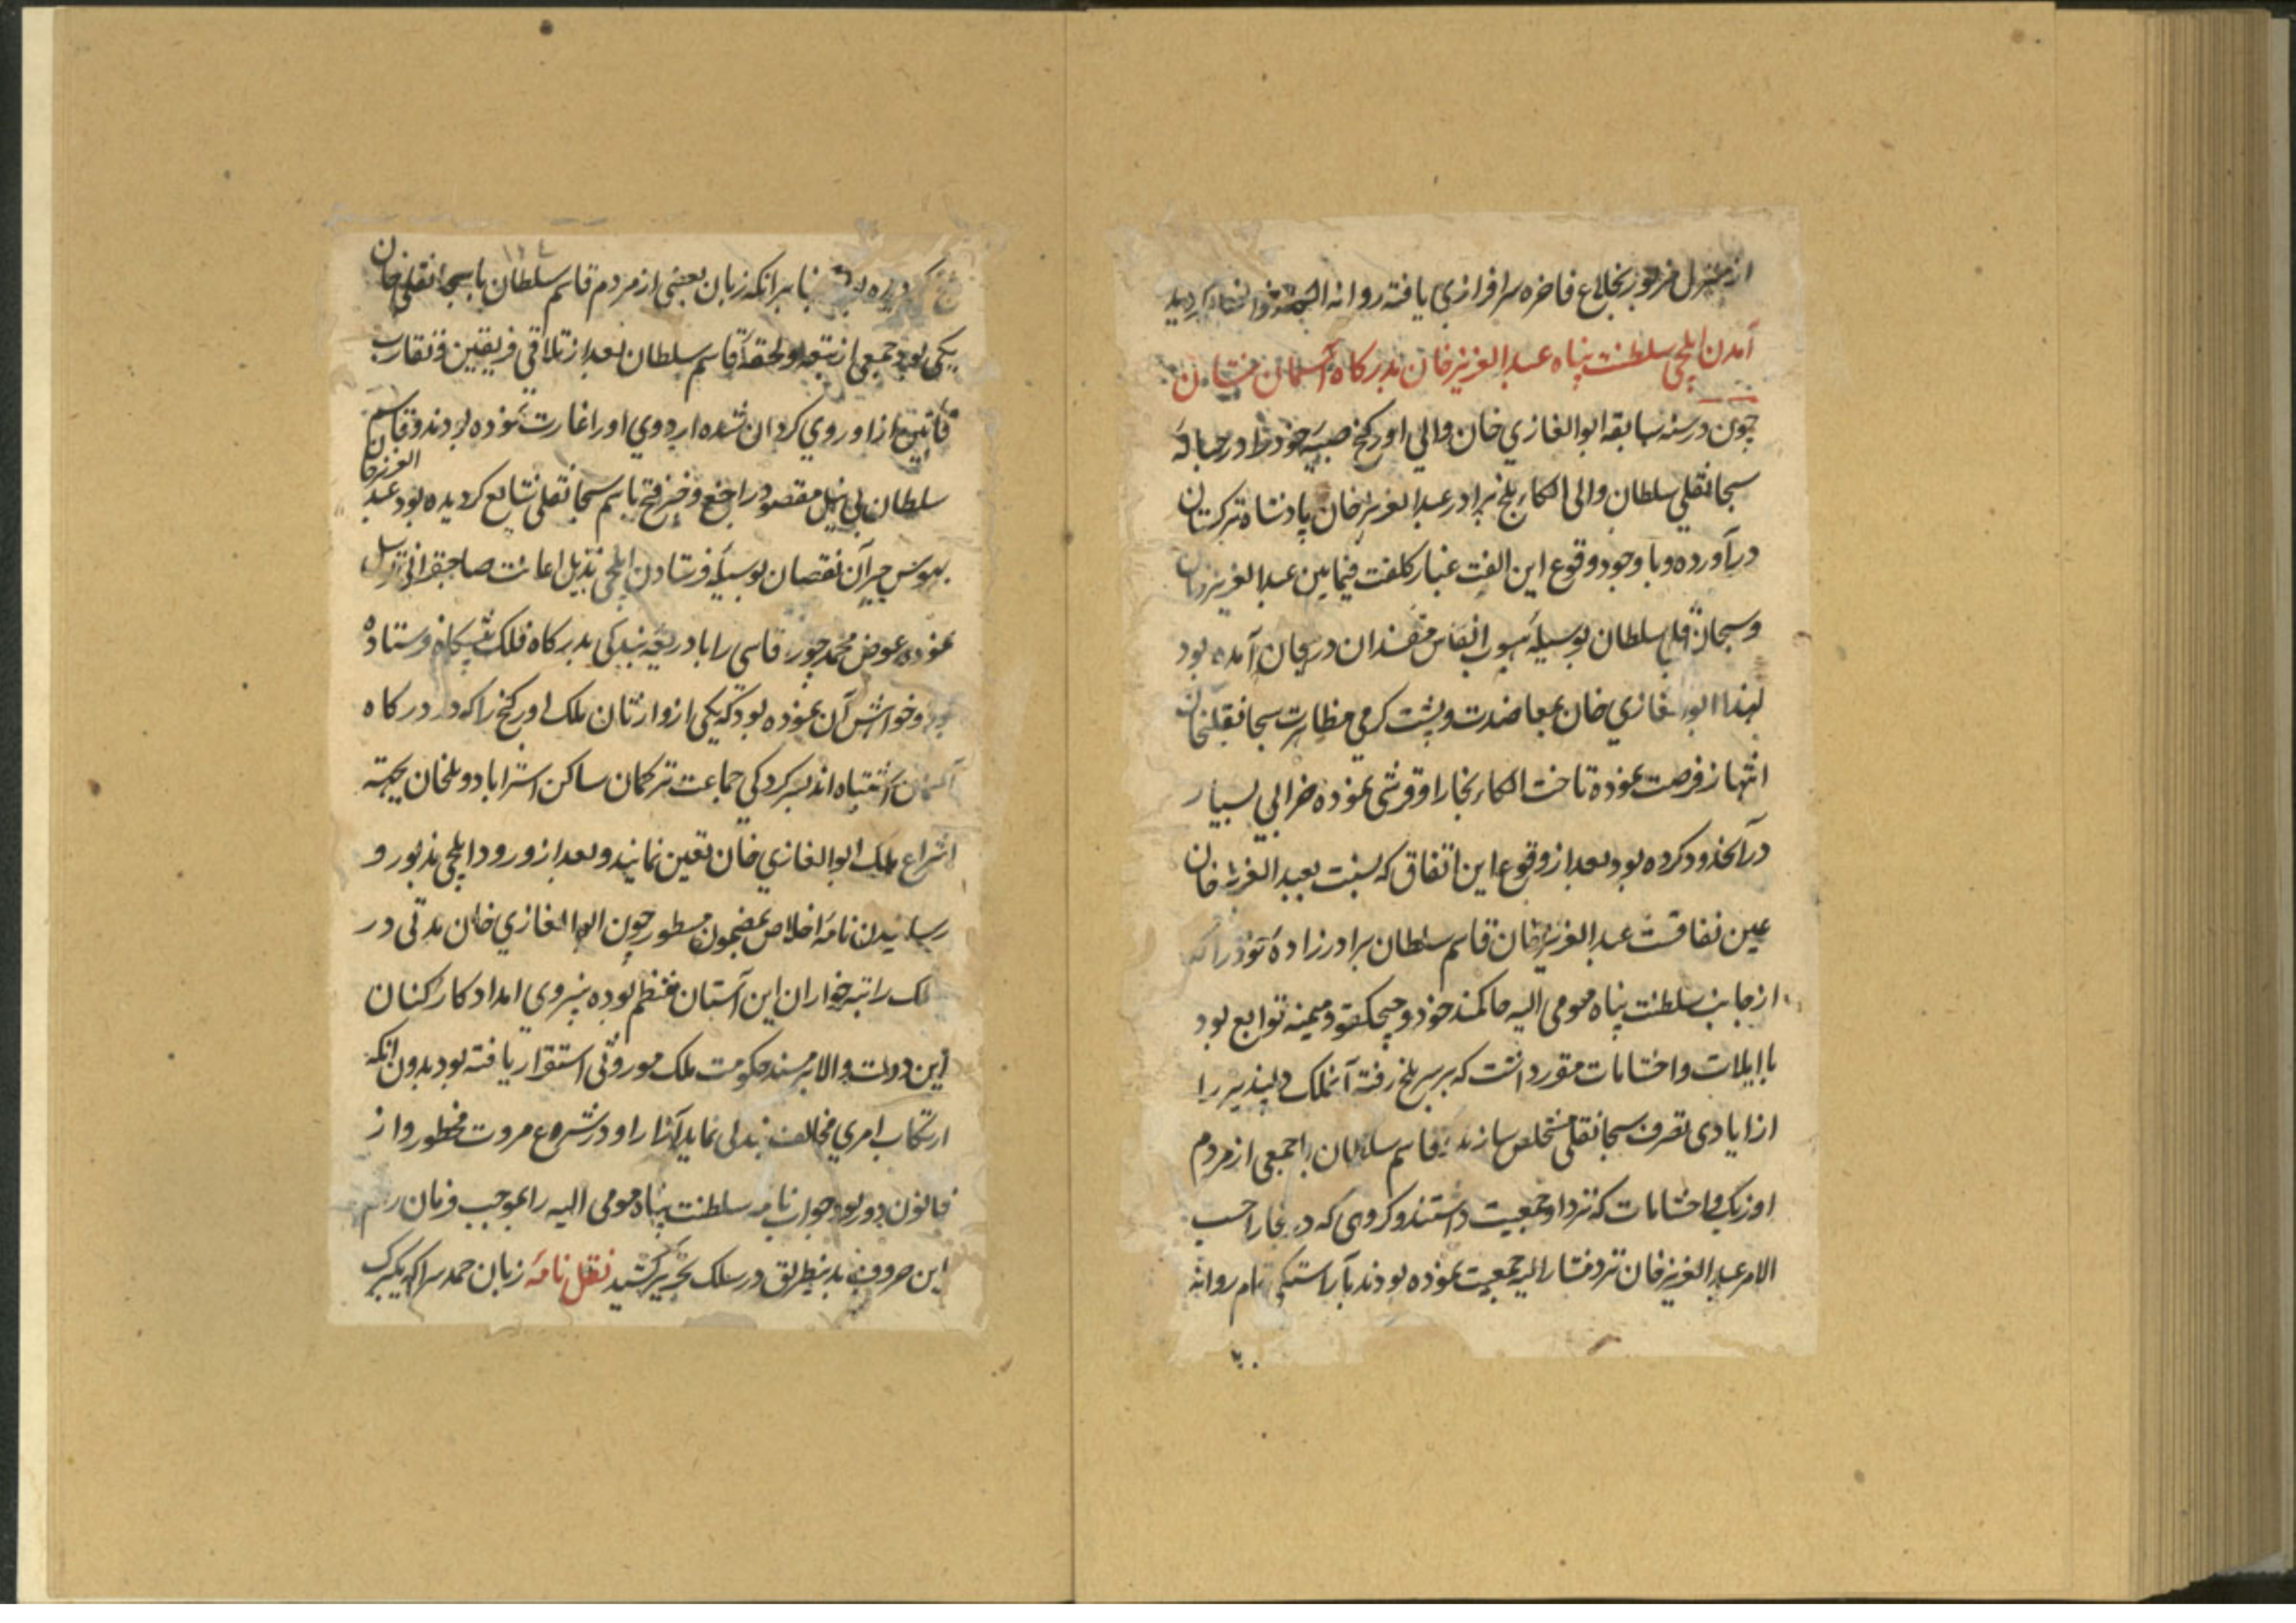 از منزل مزبور بخلاع فاخره سرافرازی یافته روانه
آمدن ایلچی سلطنت پناه عبد العزیز خان بدرکاه آسمان نشان
چون در سنه سابقه ابو الغازی خان والی اورکنج صبیه خود را در حباله
سبحانقلی سلطان والی الکاء بلخ برادر عبد العزیز خان پادشاه ترکستان
درآورده و با وجود وقوع این الفت غبار کلفت فیمابین عبد العزیز خان
و سبحان قلی سلطان بوسیله هبوب انفاس مفسدان در هیجان آمده بود
لهذا ابو الغازی خان بمعاضدت و پشت کرمی مظاهرت سبحانقلیخان
انتهاز فرصت نموده تاخت الکاء بخارا و قرشی نموده خرابی بسیار
در آنحدود کرده بود بعد از وقوع این اتفاق که نسبت بعبد العزیز خان
عین نفاقست عبد العزیز خان قاسم سلطان برادر زاده خود را که
از جانب سلطنت پناه مومی الیه حاکم اندخود و چیچکتو و میمنه توابع بود
با ایلات و احشامات مقرر داشت که بر سر بلخ رفته آنملک دلپذیر را
از ایادی تصرف سبحانقلی مستخلص سازند قاسم سلطان با جمعی از مردم
اوزبک و احشامات که نزد او جمعیت داشتند و کروهی که در بخارا حسب
الامر عبد العزیز خان نزد مشار الیه جمعیت نموده بودند بآراستکی تمام روانه
۱۲۴
کردیده بود بنابر انکه زبان بعضی از مردم قاسم سلطان با سبحانقلی خان
یکی بود جمعی از تبعه و لحقه قاسم سلطان بعد از تلاقی فریقین و تقارب
فئتین از او روی کردان شده اردوی او را غارت نموده بودند و قاسم
سلطان بی نیل مقصود راجع و خبر فتح باسم سبحانقلی شایع کردیده بود عبد العزیز خان
بهوس جبر آن نقصان بوسیله فرستادن ایلچی بذیل اعانت صاحبقرانی توسل
نموده عوض محمد چوره قاسی را با ذریعه بندکی بدرکاه فلک پیشکاه فرستاده
بود و خواهش آن نموده بود که یکی از وارثان ملک اورکنج را که در درکاه
آسمان اشتباه اند بسرکردکی جماعت ترکمان ساکن استراباد و بلخان بجهة
انتزاع ملک ابو الغازی خان تعین نمایند و بعد از ورود ایلچی مذبور و
رسانیدن نامه اخلاص بمضمون مسطور چون ابو الغازی خان مدتی در
سلک راتبه خواران این آستان منتظم بوده بنیروی امداد کارکنان
این دولت والا بر مسند حکومت ملک موروثی استقرار یافته بود بدون انکه
ارتکاب امری مخالف بندکی نماید آزار او در شرع مروت محظور و از
قانون دور بود جواب نامه سلطنت پناه مومی الیه را بموجب فرمان
این حروف بدینطریق در سلک تحریر کشید نقل نامه زبان حمد سرا که بکبرک